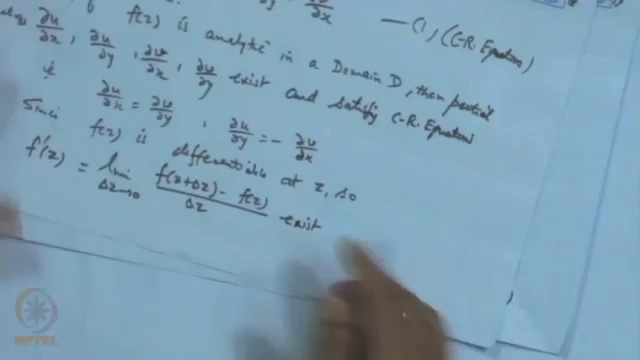 ∂v/∂x — (1) (C-R. Equations)
If f(z) is analytic in a Domain D, then partial
∂u/∂x, ∂u/∂y, ∂v/∂x, ∂v/∂y exist and satisfy C-R. Equations
ie ∂u/∂x = ∂v/∂y , ∂u/∂y = - ∂v/∂x
Since f(z) is differentiable at z, so
f'(z) = lim Δz→0 f(z+Δz) - f(z) / Δz exist
NPTEL